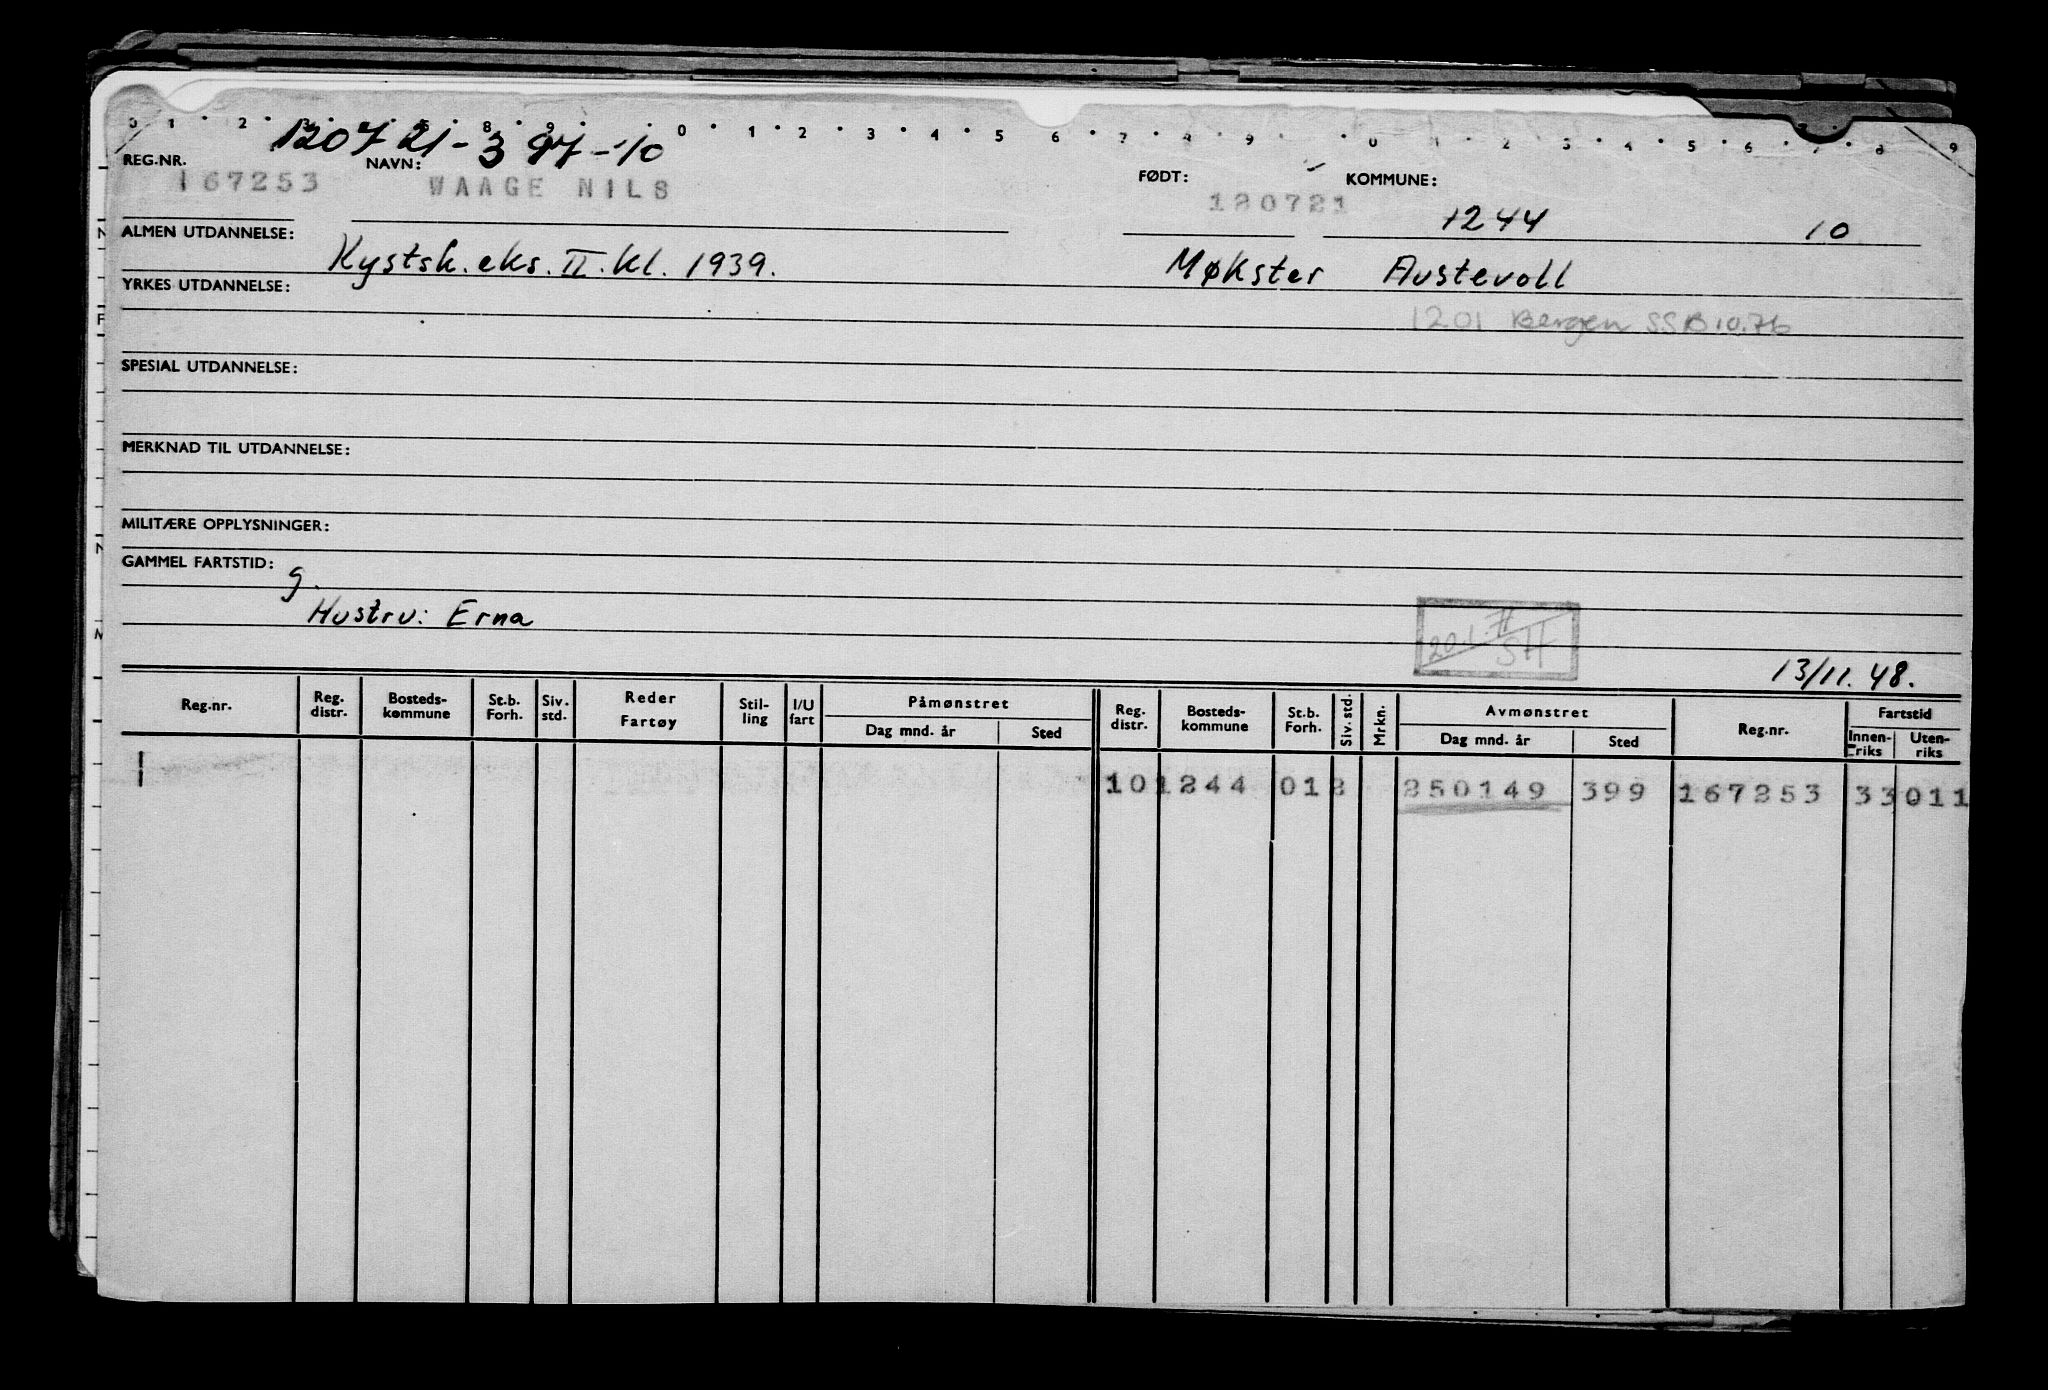 0 1 2 3 5 8 9 0 1 2 3 4 5 6 7 8 9 0 1 2 3 4 5 6 7 8 9
120721-397-10
REG.NR. NAVN: FØDT: KOMMUNE:
167253 WAAGE NILS 120721 1244 10
ALMEN UTDANNELSE: Kystsk. eks. II. kl. 1939. Møkster Austevoll
YRKES UTDANNELSE:
1201 Bergen SSB 10.76
SPESIAL UTDANNELSE:
MERKNAD TIL UTDANNELSE:
MILITÆRE OPPLYSNINGER:
GAMMEL FARTSTID:
g.
Hustru: Erna
20.1.71
SH
13/11.48.
Reg.nr. Reg. distr. Bosteds-kommune St.b. Forh. Siv. std. Reder Fartøy Stil-ling I/U fart Påmønstret Dag mnd. år Sted Reg. distr. Bosteds-kommune St.b. Forh. Siv. std. Mrkn. Avmønstret Dag mnd. år Sted Reg.nr. Fartstid Innen-riks Uten-riks
10 1244 012 250149 399 167253 33 011